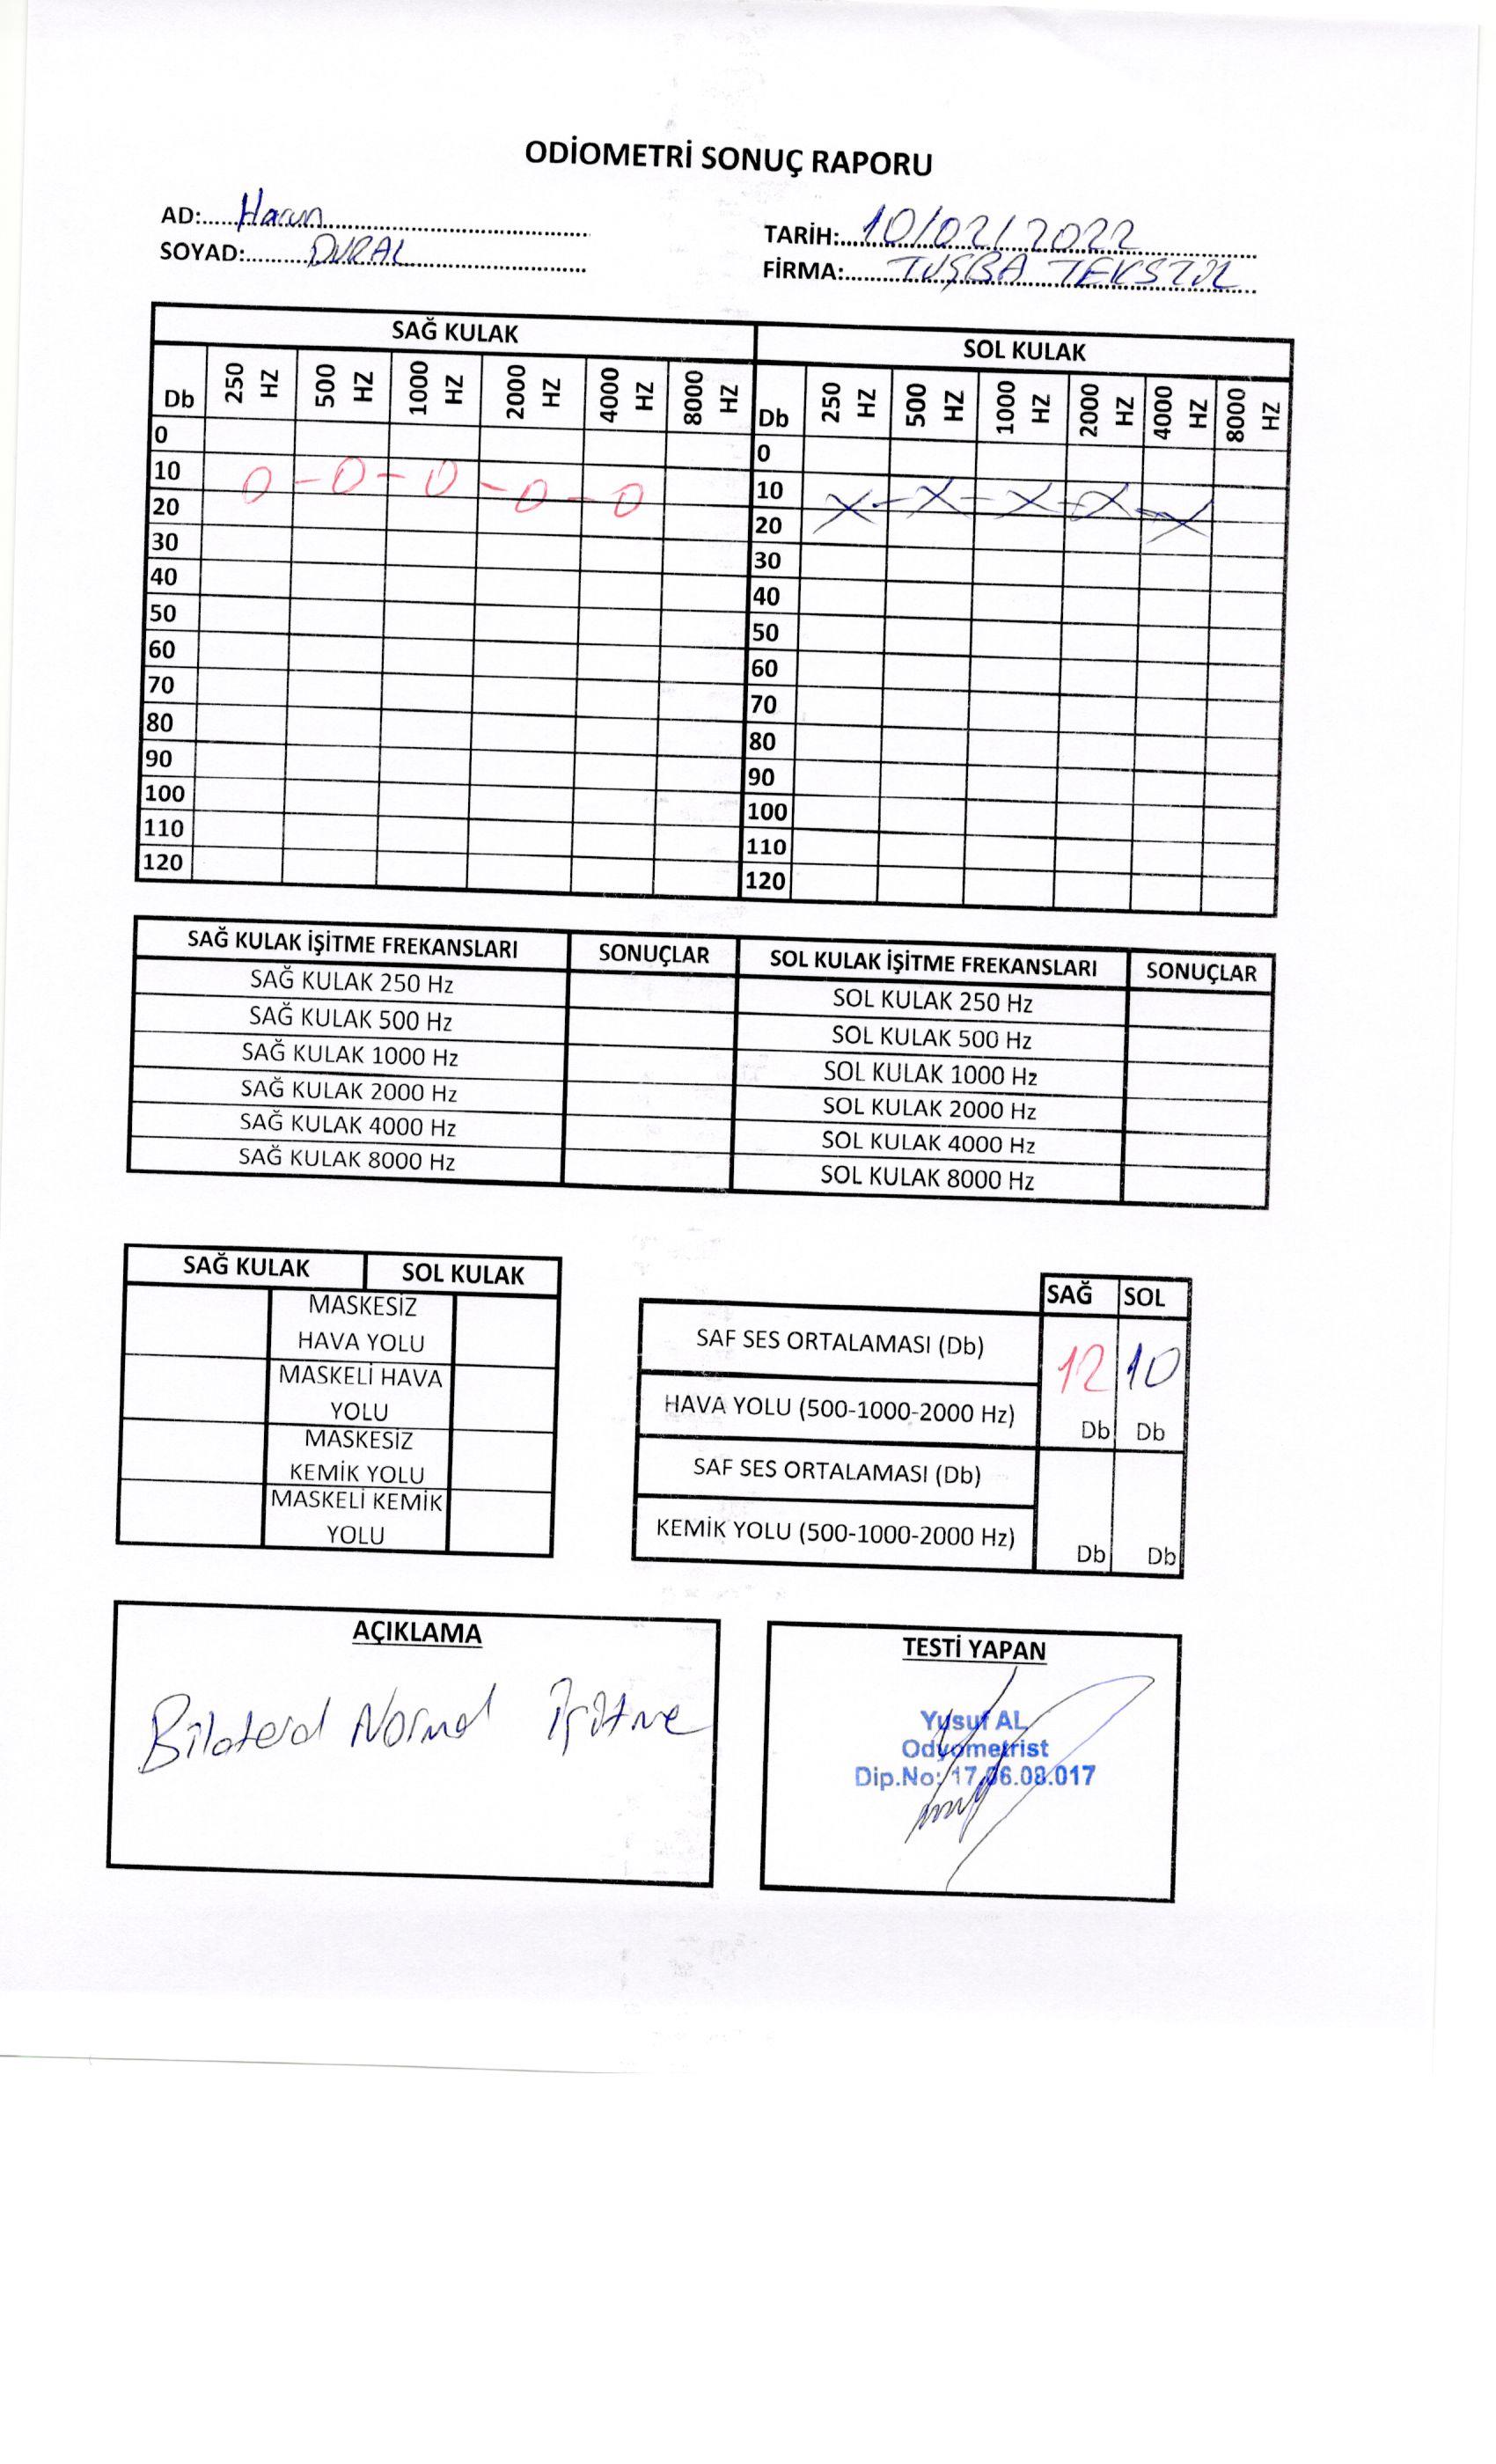 ODİOMETRİ SONUÇ RAPORU
AD:.....Harun..........
SOYAD:.......DURAL..........
TARİH:...10/02/2022..........
FİRMA:......TUŞBA TEKSTİL..........
SAĞ KULAK SOL KULAK
Db 250 HZ 500 HZ 1000 HZ 2000 HZ 4000 HZ 8000 HZ Db 250 HZ 500 HZ 1000 HZ 2000 HZ 4000 HZ 8000 HZ
0 0
10 O - O - O - O - O 10 X - X - X - X - X
20 20
30 30
40 40
50 50
60 60
70 70
80 80
90 90
100 100
110 110
120 120
SAĞ KULAK İŞİTME FREKANSLARI SONUÇLAR SOL KULAK İŞİTME FREKANSLARI SONUÇLAR
SAĞ KULAK 250 Hz SOL KULAK 250 Hz
SAĞ KULAK 500 Hz SOL KULAK 500 Hz
SAĞ KULAK 1000 Hz SOL KULAK 1000 Hz
SAĞ KULAK 2000 Hz SOL KULAK 2000 Hz
SAĞ KULAK 4000 Hz SOL KULAK 4000 Hz
SAĞ KULAK 8000 Hz SOL KULAK 8000 Hz
SAĞ KULAK SOL KULAK
MASKESİZ
HAVA YOLU
MASKELİ HAVA
YOLU
MASKESİZ
KEMİK YOLU
MASKELİ KEMİK
YOLU
SAĞ SOL
SAF SES ORTALAMASI (Db) 12 10
HAVA YOLU (500-1000-2000 Hz) Db Db
SAF SES ORTALAMASI (Db)
KEMİK YOLU (500-1000-2000 Hz) Db Db
AÇIKLAMA
Bilateral Normal İşitme
TESTİ YAPAN
Yusuf AL
Odyometrist
Dip.No: 17.06.08.017